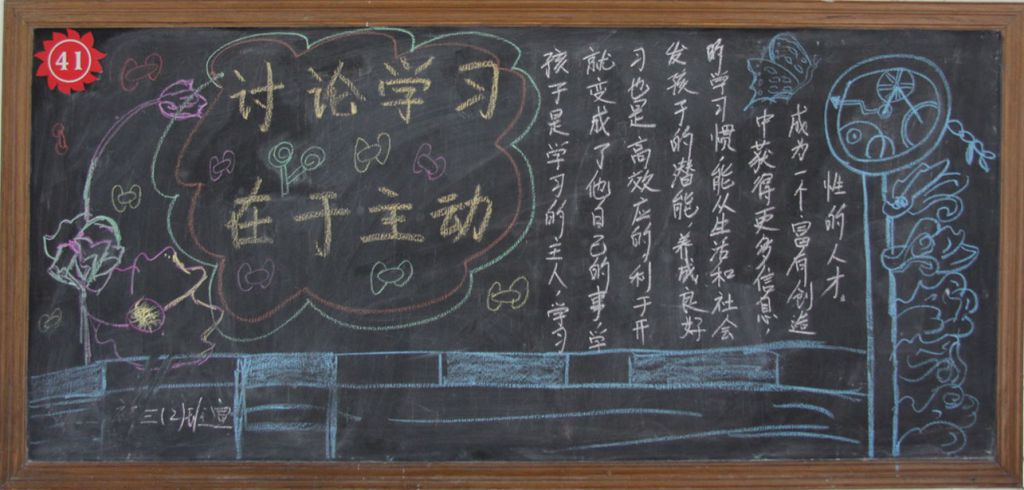 41
讨论学习
在于主动
孩子是学习的主人,学习
就变成了他自己的事,学
习也是高效应的利于开
发孩子的潜能,养成良好
的学习惯,能从生活和社会
中获得更多信息
成为一个富有创造
性的人才。
三(2)班宣